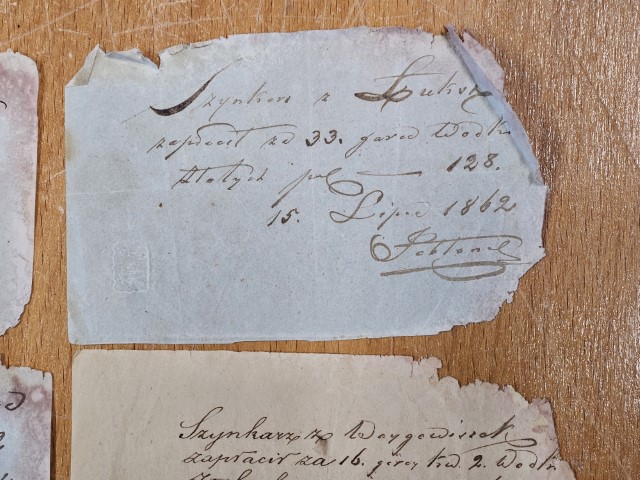 Szynkarz z Łuko
zapłacił za 33. garcy Wodk
Złotych pol — 128.
15. Lipca 1862
Szynkarz z
zapłacił za 16. garcy kw. 2. Wodk